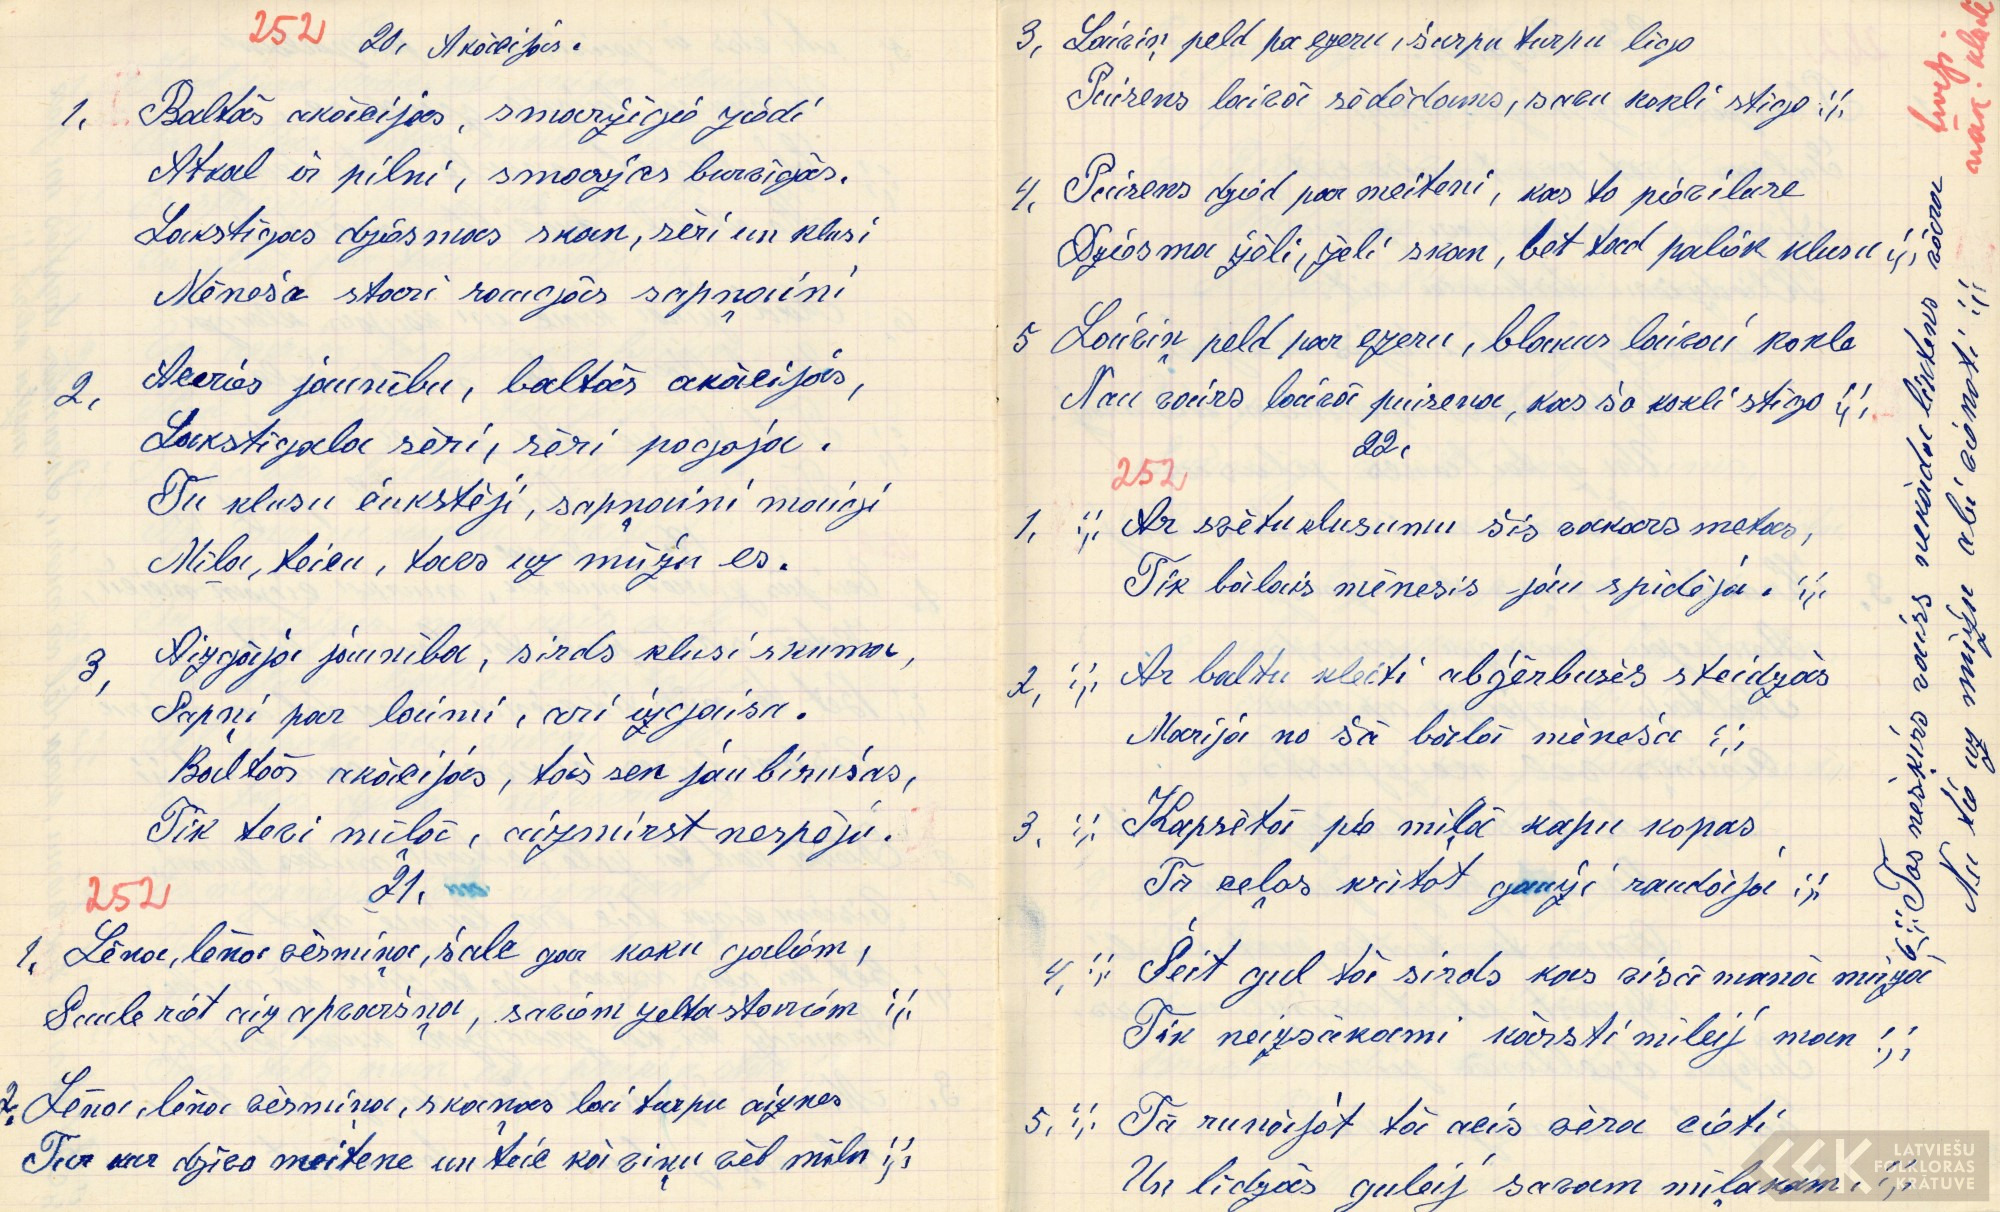 252 20. Akācijas.
1. Baltās akācijas, smaržīgo ziedi
Atkal ir pilni, smaržas burvīgās.
Lakstīgas dziesmas skan, sēri un klusi
Mēneša stari raugās sapņaini
2. Atceries jaunību, baltās akācijas,
Lakstīgala sēri, sēri pogoja.
Tu klusu čukstēji, sapņaini maigi
Mīļa, teicu, tavs uz mūžu es.
3, Aizgāja jaunība, sirds klusi skuma,
Sapņi par laimi, arī izgaisa.
Baltās akācijas, tās sen jau birušas,
Tik tevi mīļā, aizmirst nespēju.
252 21.
1. Lēna, lēna vēsmiņa, šalc gar koku galiem,
Saule riet aiz apvāršņa, saviem zelta stariem :,:
2. Lēna, lēna vēsmiņa, skaņas lai turpu aiznes
Tur kur dzīvo meitene un teic kā viņu vēl mīlu :,:
3, Laiviņ peld pa ezeru, šurpu turpu līgo
Puisens laivā sēdēdams, savu kokli stīgo :,:
4, Puisens dzied par meiteni, kas to pievīluse
Dziesma žēli, žēli skan, bet tad paliek klusu :,:
5 Laiviņ peld par ezeru, blakus laivai kokle
Nau vairs laivā puisena, kas šo kokli stīgo :,:
22.
252
1. :,: Ar svētu klusumu šis vakars metas,
Tik bālais mēnesis jau spīdēja. :,:
2, :,: Ar baltu kleiti abģērbusēs steidzās
Marija no šā bālā mēneša :,:
3. :,: Kapsētā pie mīļā kapu kopas
Tā ceļos krītot gauži raudāja :,:
4, :,: Šeit gul tā sirds kas visā manā mūža
Tik neizsākami kārsti mīlēj man :,:
5, :,: Tā runājot tā acis vēra cieti
Un līdzās gulēj savam mīļākam. :,:
6 :,: Tos nešķirs vairs nekāds liktens vāra
Nu tie uz mūžu abi vienoti :,:
LATVIEŠU
FOLKLORAS
KRĀTUVE